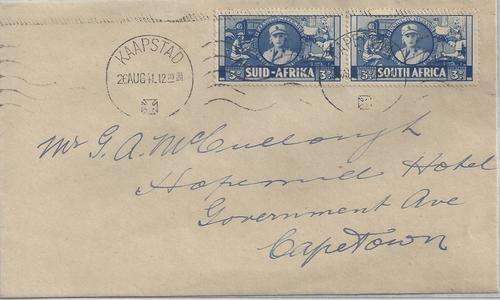 KAAPSTAD
26 AUG 41.12
3D SUID-AFRIKA 3D
3D SOUTH AFRICA 3D
Mr G. A. McCullough
Hopemill Hotel
Government Ave
CapeTown